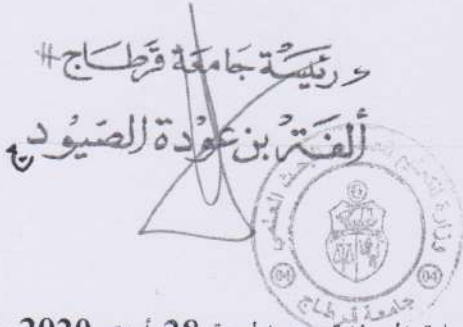 رئيسة جامعة قرطاج
ألفة بن عودة الصيود
وزارة التعليم العالي والبحث العلمي
جامعة قرطاج
04
04
28
2020